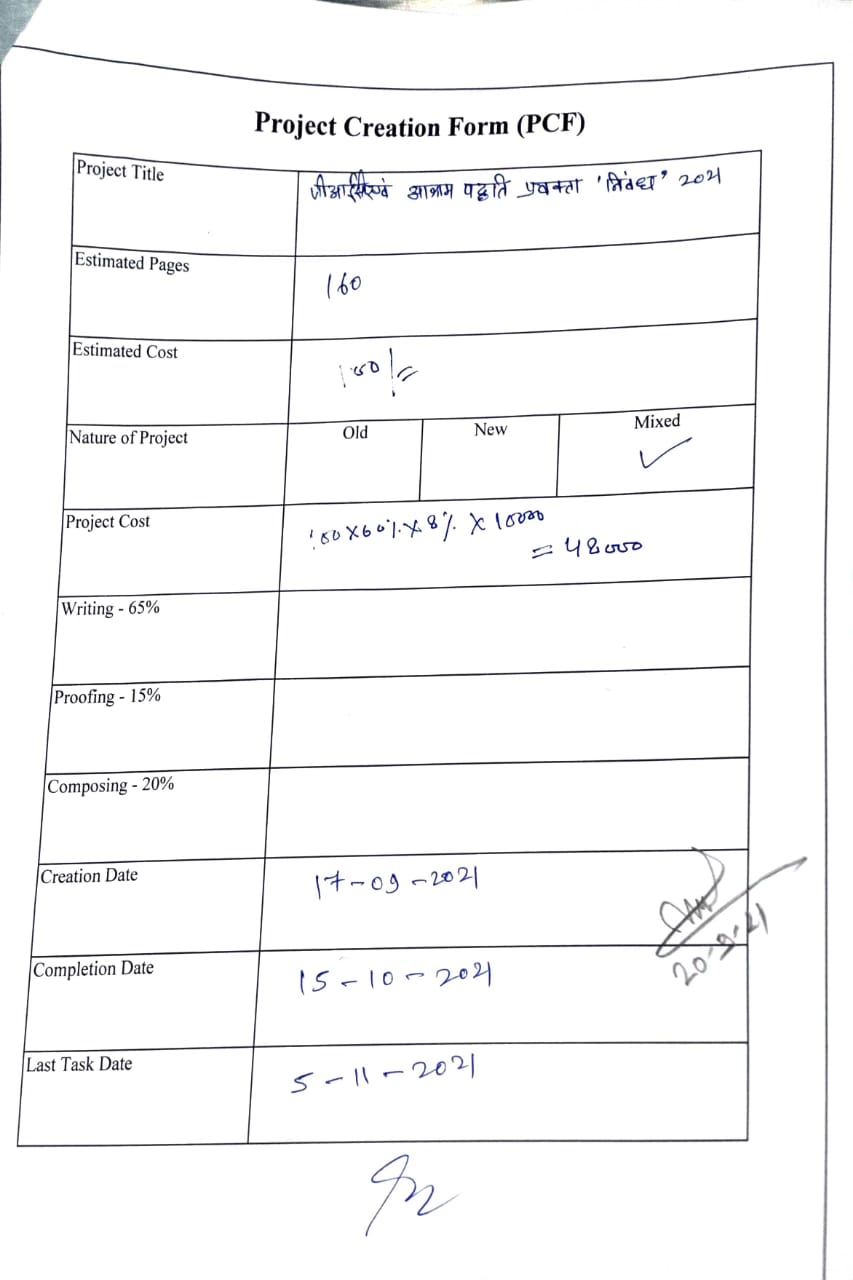 Project Creation Form (PCF)
Project Title
जीआईसी एवं आश्रम पद्धति प्रवक्ता 'निबंध' 2021
Estimated Pages
160
Estimated Cost
100/=
Nature of Project
Old
New
Mixed
✓
Project Cost
100 X 60% X 8% X 10000
= 48000
Writing - 65%
Proofing - 15%
Composing - 20%
Creation Date
17-09-2021
20-9-21
Completion Date
15-10-2021
Last Task Date
5-11-2021